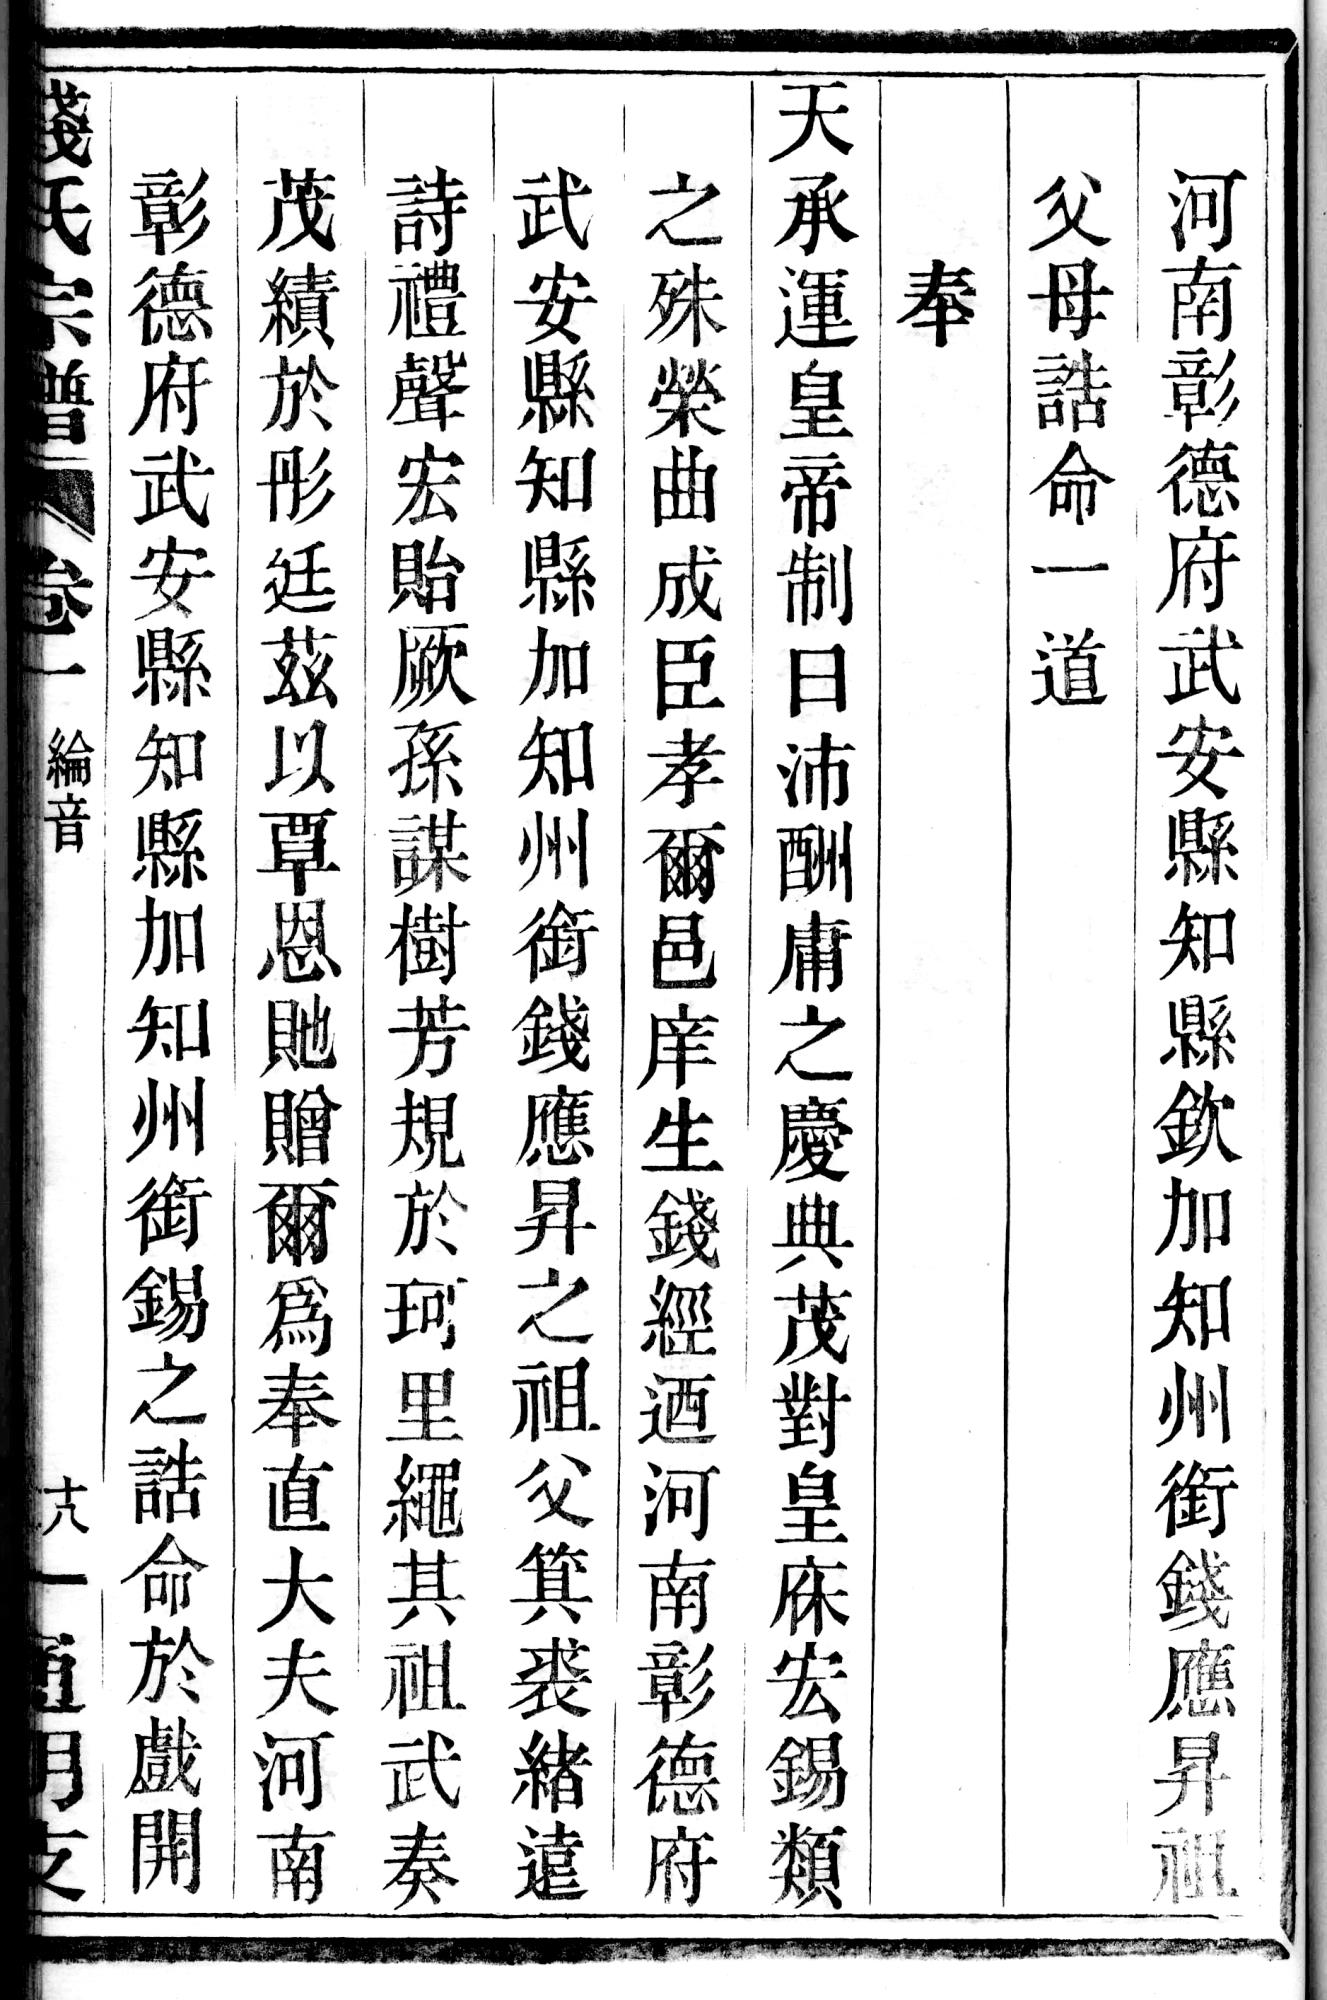 河南彰德府武安縣知縣欽加知州銜錢應昇祖
父母誥命一道
奉
天承運皇帝制曰沛酬庸之慶典茂對皇庥宏錫類
之殊榮曲成臣孝爾邑庠生錢經迺河南彰德府
武安縣知縣加知州銜錢應昇之祖父箕裘緒遠
詩禮聲宏貽厥孫謀樹芳規於珂里繩其祖武奏
茂績於彤廷茲以覃恩貤贈爾爲奉直大夫河南
彰德府武安縣知縣加知州銜錫之誥命於戲開
錢氏宗譜 卷一 綸音 十八 通明支